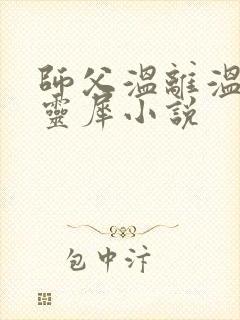 師父溫離溫
靈犀小說
包中汴